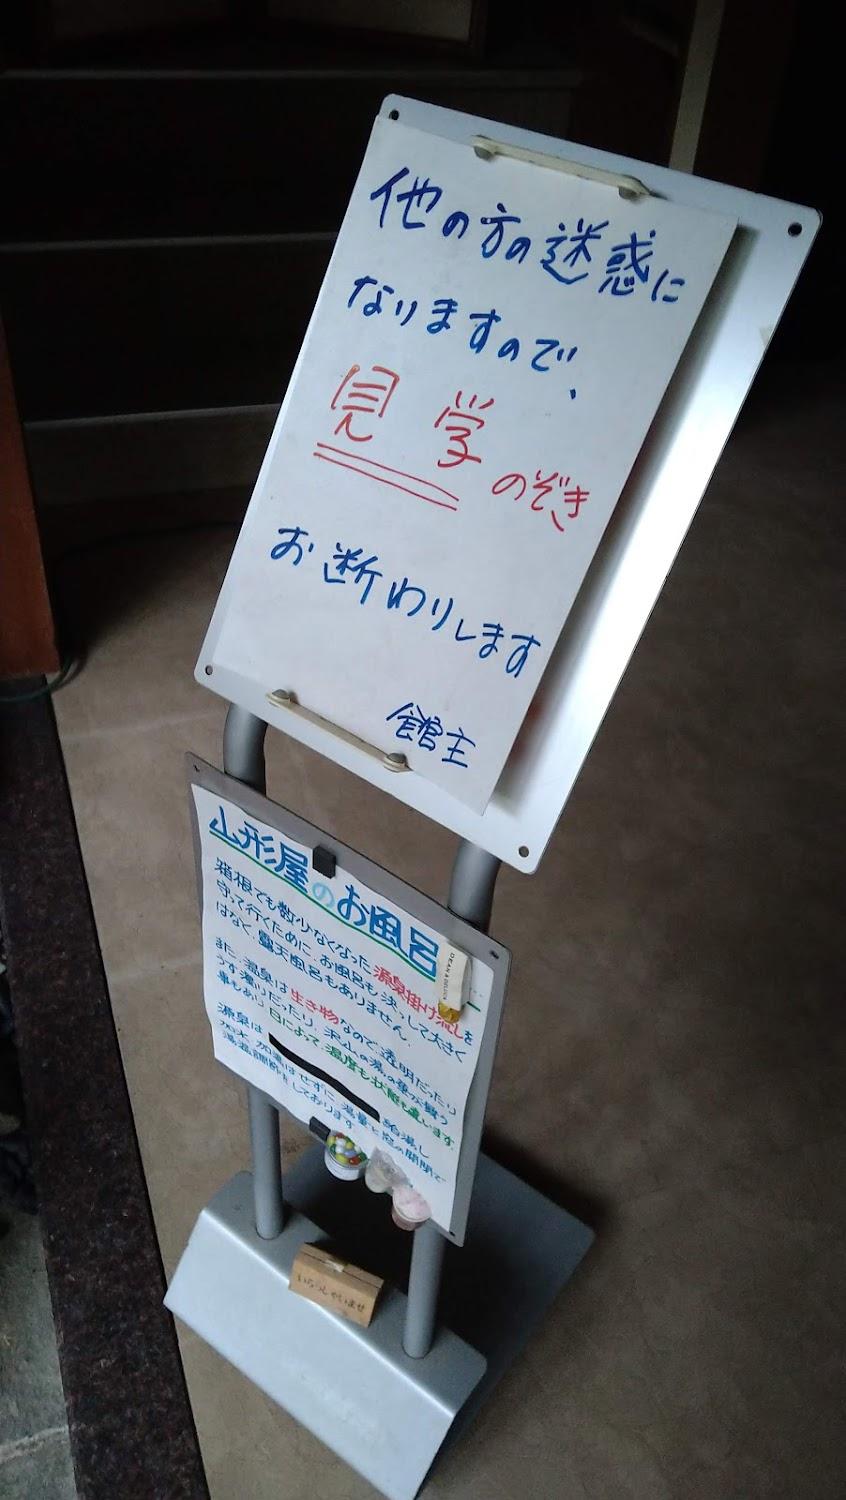 他の方の迷惑に
なりますので、
見学のぞき
お断わりします
館主
山形屋のお風呂
箱根でも数少なくなった源泉掛け流しを
守って行くために、お風呂も決っして大きく
はなく、露天風呂もありません。
また、温泉は生き物なので、透明だったり
うす濁りだったり、沢山の湯の華が舞う
事もあり、日によって、温度も状態も違います。
源泉は 給湯し
加水、加温はせずに、湯量と窓の開閉で
湯温調節をしております。
いらっしゃいませ